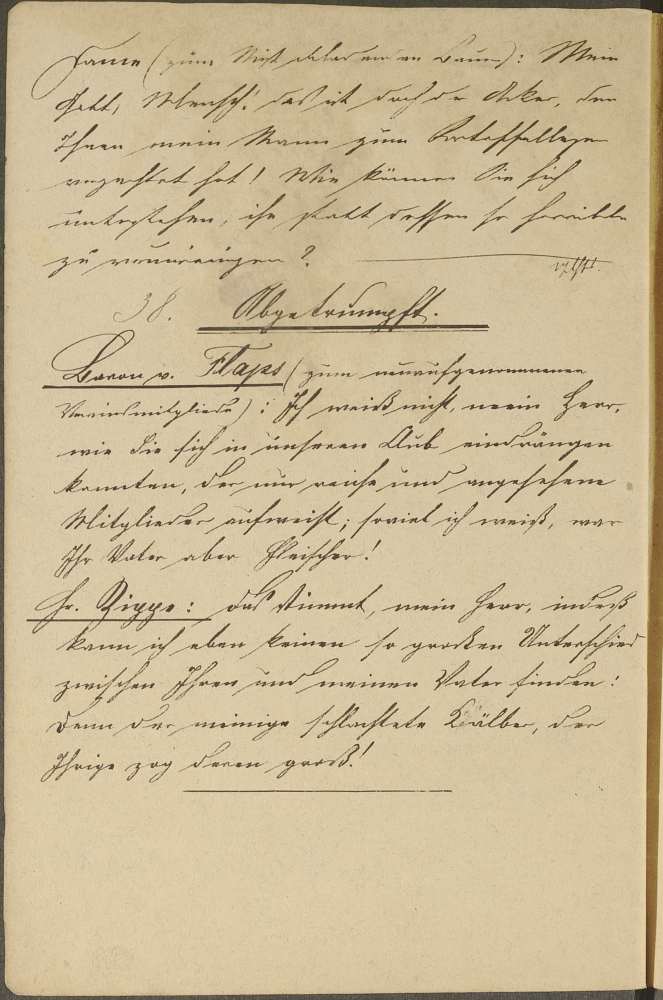 Dame (zum Mist abladenden Bauer): Mein
Gott, Mensch! das ist doch der Acker, den
Ihnen mein Mann zum Kartoffellegen
verpachtet hat! Wie können Sie sich
unterstehen, ihn statt dessen so horribele
zu verunreinigen?
38. Abgetrumpft.
Baron v. Flaps (zum neuaufgenommenen
Vereinsmitgliede): Ich weiß nicht, mein Herr,
wie Sie sich in unseren Club eindrängen
konnten, der nur reiche und angesehene
Mitglieder aufweist; soviel ich weiß, war
Ihr Vater aber Fleischer!
Hr. Zippe: Das stimmt, mein Herr, indeß
kann ich eben keinen so großen Unterschied
zwischen Ihrem und meinem Vater finden:
Denn der meinige schlachtete Kälber, der
Ihrige zog deren groß!